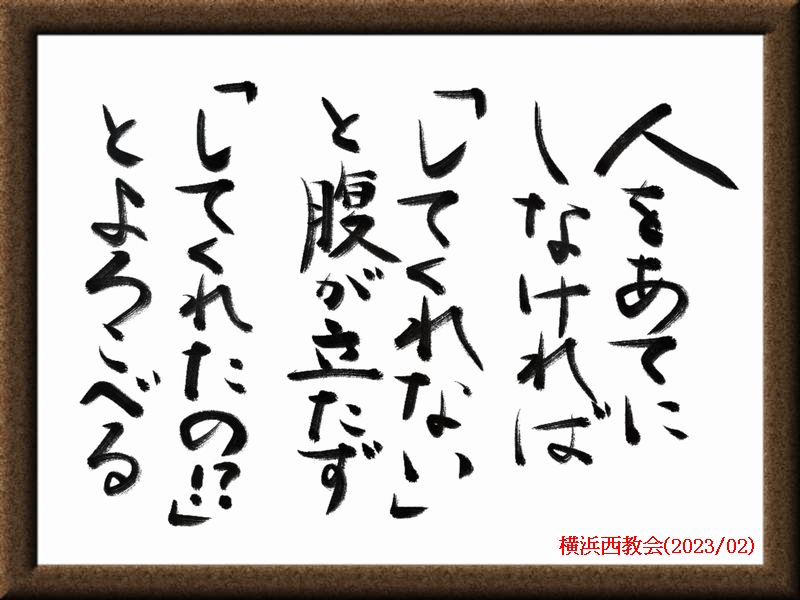 人をあてに
しなければ
「してくれない」
と腹が立たず
「してくれたの!?」
とよろこべる
横浜西教会(2023/02)